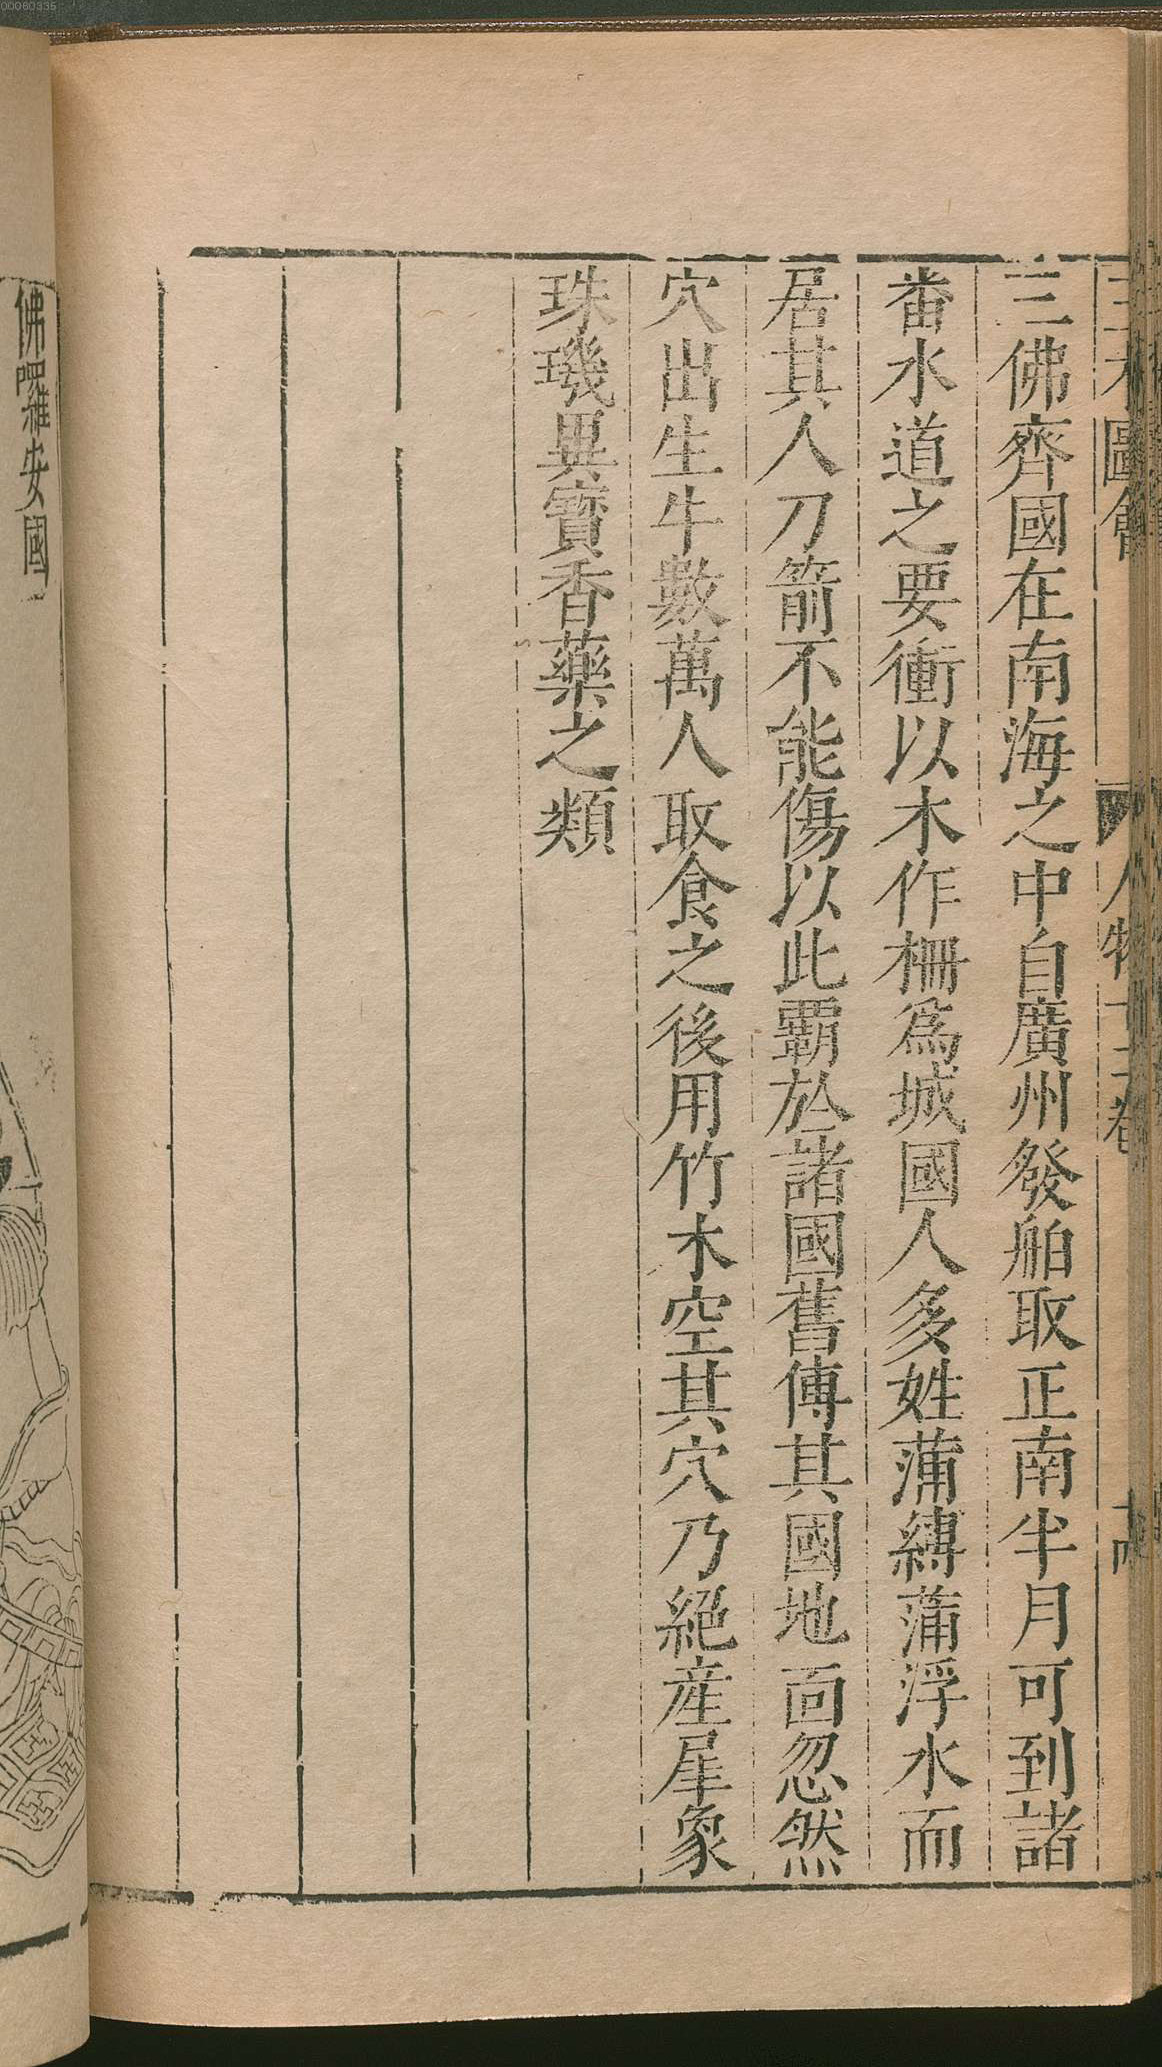 三才圖會 人物十三卷
三佛齊國在南海之中自廣州發舶取正南半月可到諸
番水道之要衝以木作柵爲城國人多姓蒲縛蒲浮水而
居其人刀箭不能傷以此霸於諸國舊傳其國地面忽然
穴出生牛數萬人取食之後用竹木空其穴乃絕産犀象
珠璣異寶香藥之類
佛囉安國
00060335